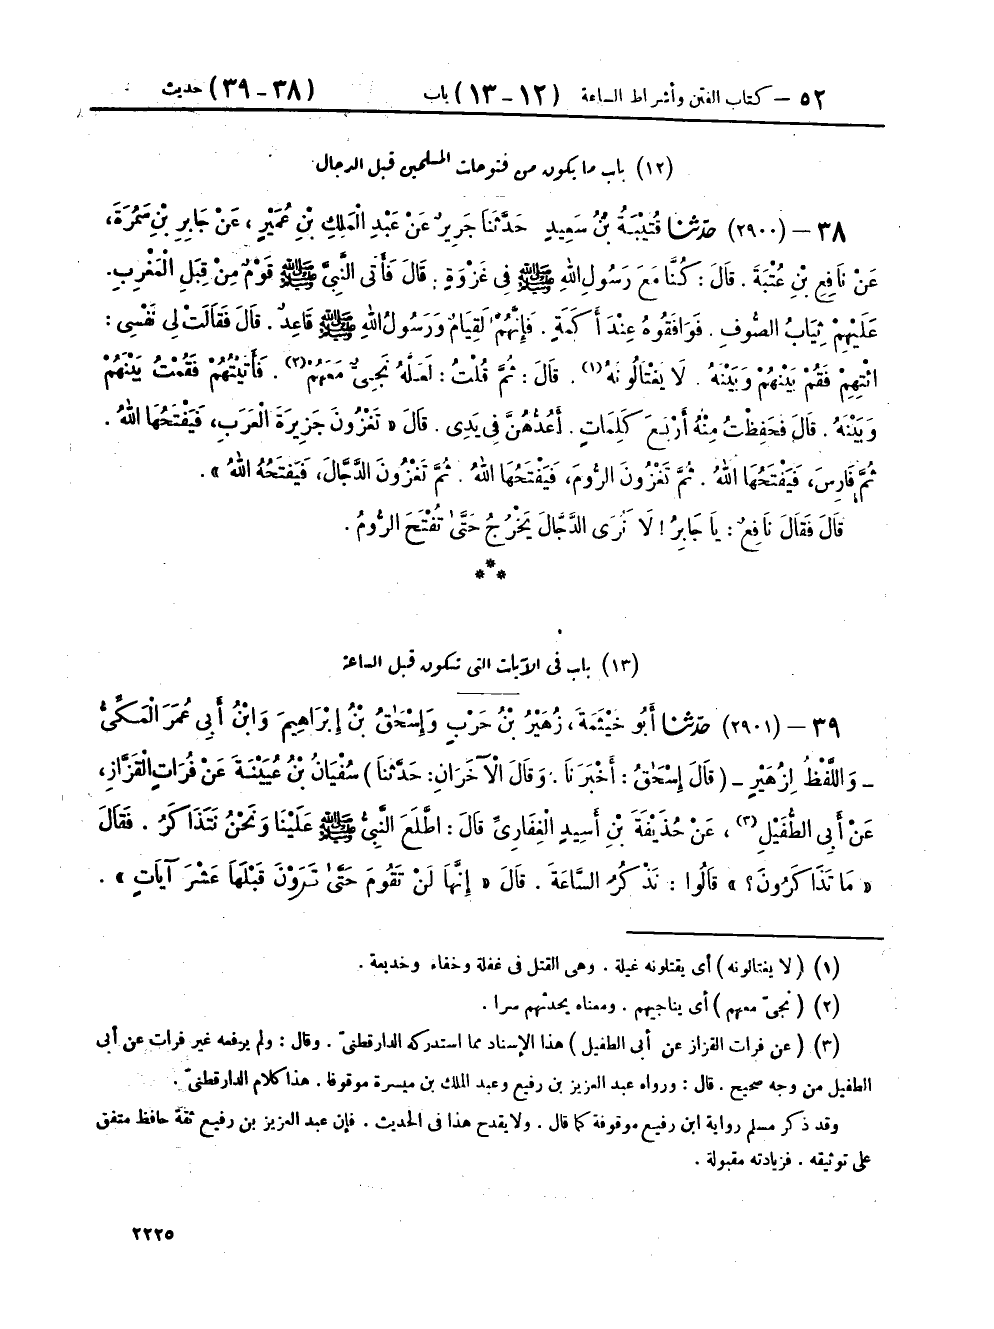 ٥٢ — كتاب الفتن وأشراط الساعة (١٢-١٣) باب (٣٨-٣٩) حديث
(١٢) باب ما يكون من فتوحات المسلمين قبل الدجال
٣٨ — (٢٩٠٠) حَدَّثَنَا قُتَيْبَةُ بْنُ سَعِيدٍ حَدَّثَنَا جَرِيرٌ عَنْ عَبْدِ الْمَلِكِ بْنِ عُمَيْرٍ ، عَنْ جَابِرِ بْنِ سَمُرَةَ،
عَنْ نَافِعِ بْنِ عُتْبَةَ . قَالَ : كُنَّا مَعَ رَسُولِ اللهِ ﷺ فِي غَزْوَةٍ . قَالَ فَأَتَى النَّبِيَّ ﷺ قَوْمٌ مِنْ قِبَلِ الْمَغْرِبِ.
عَلَيْهِمْ ثِيَابُ الصُّوفِ . فَوَافَقُوهُ عِنْدَ أَكَمَةٍ . فَإِنَّهُمْ لَقِيَامٌ وَرَسُولُ اللهِ ﷺ قَاعِدٌ . قَالَ فَقَالَتْ لِي نَفْسِي :
ائْتِهِمْ فَقُمْ بَيْنَهُمْ وَبَيْنَهُ . لَا يَغْتَالُونَهُ(١) . قَالَ : ثُمَّ قُلْتُ : لَعَلَّهُ نَجِيٌّ مَعَهُمْ(٢) . فَأَتَيْتُهُمْ فَقُمْتُ بَيْنَهُمْ
وَبَيْنَهُ . قَالَ فَحَفِظْتُ مِنْهُ أَرْبَعَ كَلِمَاتٍ . أَعُدُّهُنَّ فِي يَدِي . قَالَ « تَغْزُونَ جَزِيرَةَ الْعَرَبِ، فَيَفْتَحُهَا اللهُ .
ثُمَّ فَارِسَ، فَيَفْتَحُهَا اللهُ . ثُمَّ تَغْزُونَ الرُّومَ، فَيَفْتَحُهَا اللهُ . ثُمَّ تَغْزُونَ الدَّجَّالَ، فَيَفْتَحُهُ اللهُ » .
قَالَ فَقَالَ نَافِعٌ : يَا جَابِرُ ! لَا نَرَى الدَّجَّالَ يَخْرُجُ حَتَّىٰ تُفْتَحَ الرُّومُ .
***
(١٣) باب في الآيات التي تكون قبل الساعة
٣٩ — (٢٩٠١) حَدَّثَنَا أَبُو خَيْثَمَةَ، زُهَيْرُ بْنُ حَرْبٍ وَإِسْحَاقُ بْنُ إِبْرَاهِيمَ وَابْنُ أَبِي عُمَرَ الْمَكِّيُّ
ـ وَاللَّفْظُ لِزُهَيْرٍ ـ ( قَالَ إِسْحَاقُ : أَخْبَرَنَا . وَقَالَ الْآخَرَانِ: حَدَّثَنَا ) سُفْيَانُ بْنُ عُيَيْنَةَ عَنْ فُرَاتٍ الْقَزَّازِ،
عَنْ أَبِي الطُّفَيْلِ(٣) ، عَنْ حُذَيْفَةَ بْنِ أَسِيدٍ الْغِفَارِيِّ قَالَ : اطَّلَعَ النَّبِيُّ ﷺ عَلَيْنَا وَنَحْنُ نَتَذَاكَرُ . فَقَالَ
« مَا تَذَاكَرُونَ؟ » قَالُوا : نَذْكُرُ السَّاعَةَ . قَالَ « إِنَّهَا لَنْ تَقُومَ حَتَّىٰ تَرَوْنَ قَبْلَهَا عَشْرَ آيَاتٍ » .
(١) ( لا يغتالونه ) أى يقتلونه غيلة . وهى القتل فى غفلة وخفاء وخديعة .
(٢) ( نجىّ معهم ) أى يناجيهم . ومعناه يحدثهم سرا .
(٣) ( عن فرات القزاز عن أبى الطفيل ) هذا الإسناد مما استدركه الدارقطنىّ . وقال : ولم يرفعه غير فرات عن أبى
الطفيل من وجه صحيح . قال : ورواه عبد العزيز بن رفيع وعبد الملك بن ميسرة موقوفا . هذا كلام الدارقطنىّ .
وقد ذكر مسلم رواية ابن رفيع موقوفة كما قال . ولا يقدح هذا فى الحديث . فإن عبد العزيز بن رفيع ثقة حافظ متفق
على توثيقه . فزيادته مقبولة .
٢٢٢٥